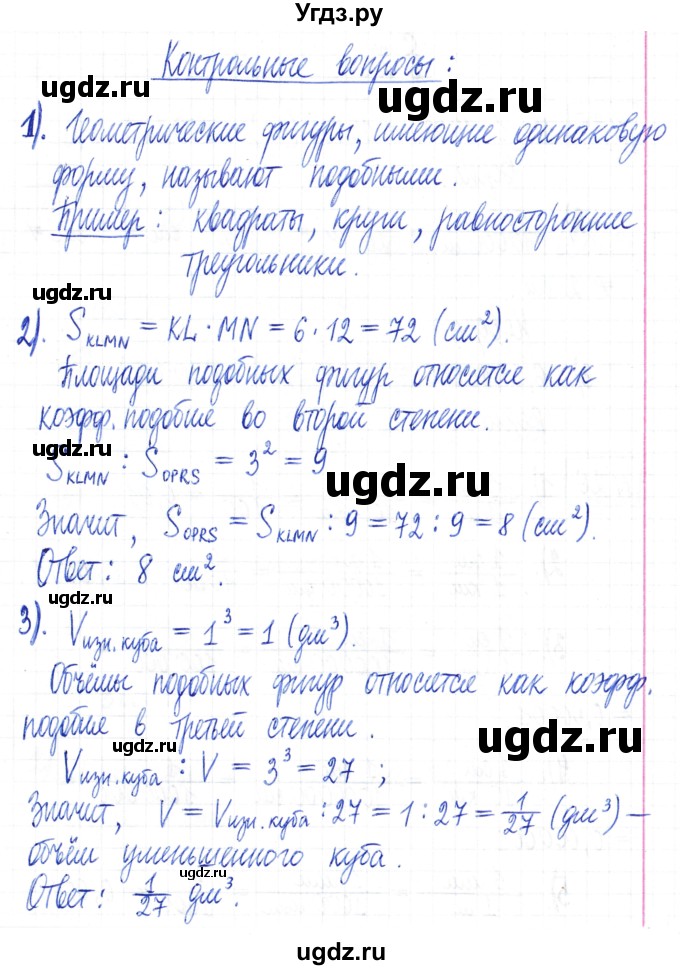 Угдз.ру
Контрольные вопросы:
ugdz.ru
ugdz.ru
1). Геометрические фигуры, имеющие одинаковую
форму, называют подобными.
ugdz.ru
Пример: квадраты, круги, равносторонние
треугольники.
ugdz.ru
2). S KLMN = KL · MN = 6 · 12 = 72 (см²).
Площади подобных фигур относятся как
коэфф. подобие во второй степени.
ugdz.ru
S KLMN : S OPRS = 3² = 9
ugdz.ru
Значит, S OPRS = S KLMN : 9 = 72 : 9 = 8 (см²).
Ответ: 8 см².
ugdz.ru
3). V изн. куба = 1³ = 1 (дм³).
Объёмы подобных фигур относятся как коэфф.
подобие в третьей степени.
ugdz.ru
ugdz.ru
V изн. куба : V = 3³ = 27 ;
Значит, V = V изн. куба : 27 = 1 : 27 = 1/27 (дм³) —
объём уменьшенного куба.
ugdz.ru
Ответ: 1/27 дм³.
ugdz.ru